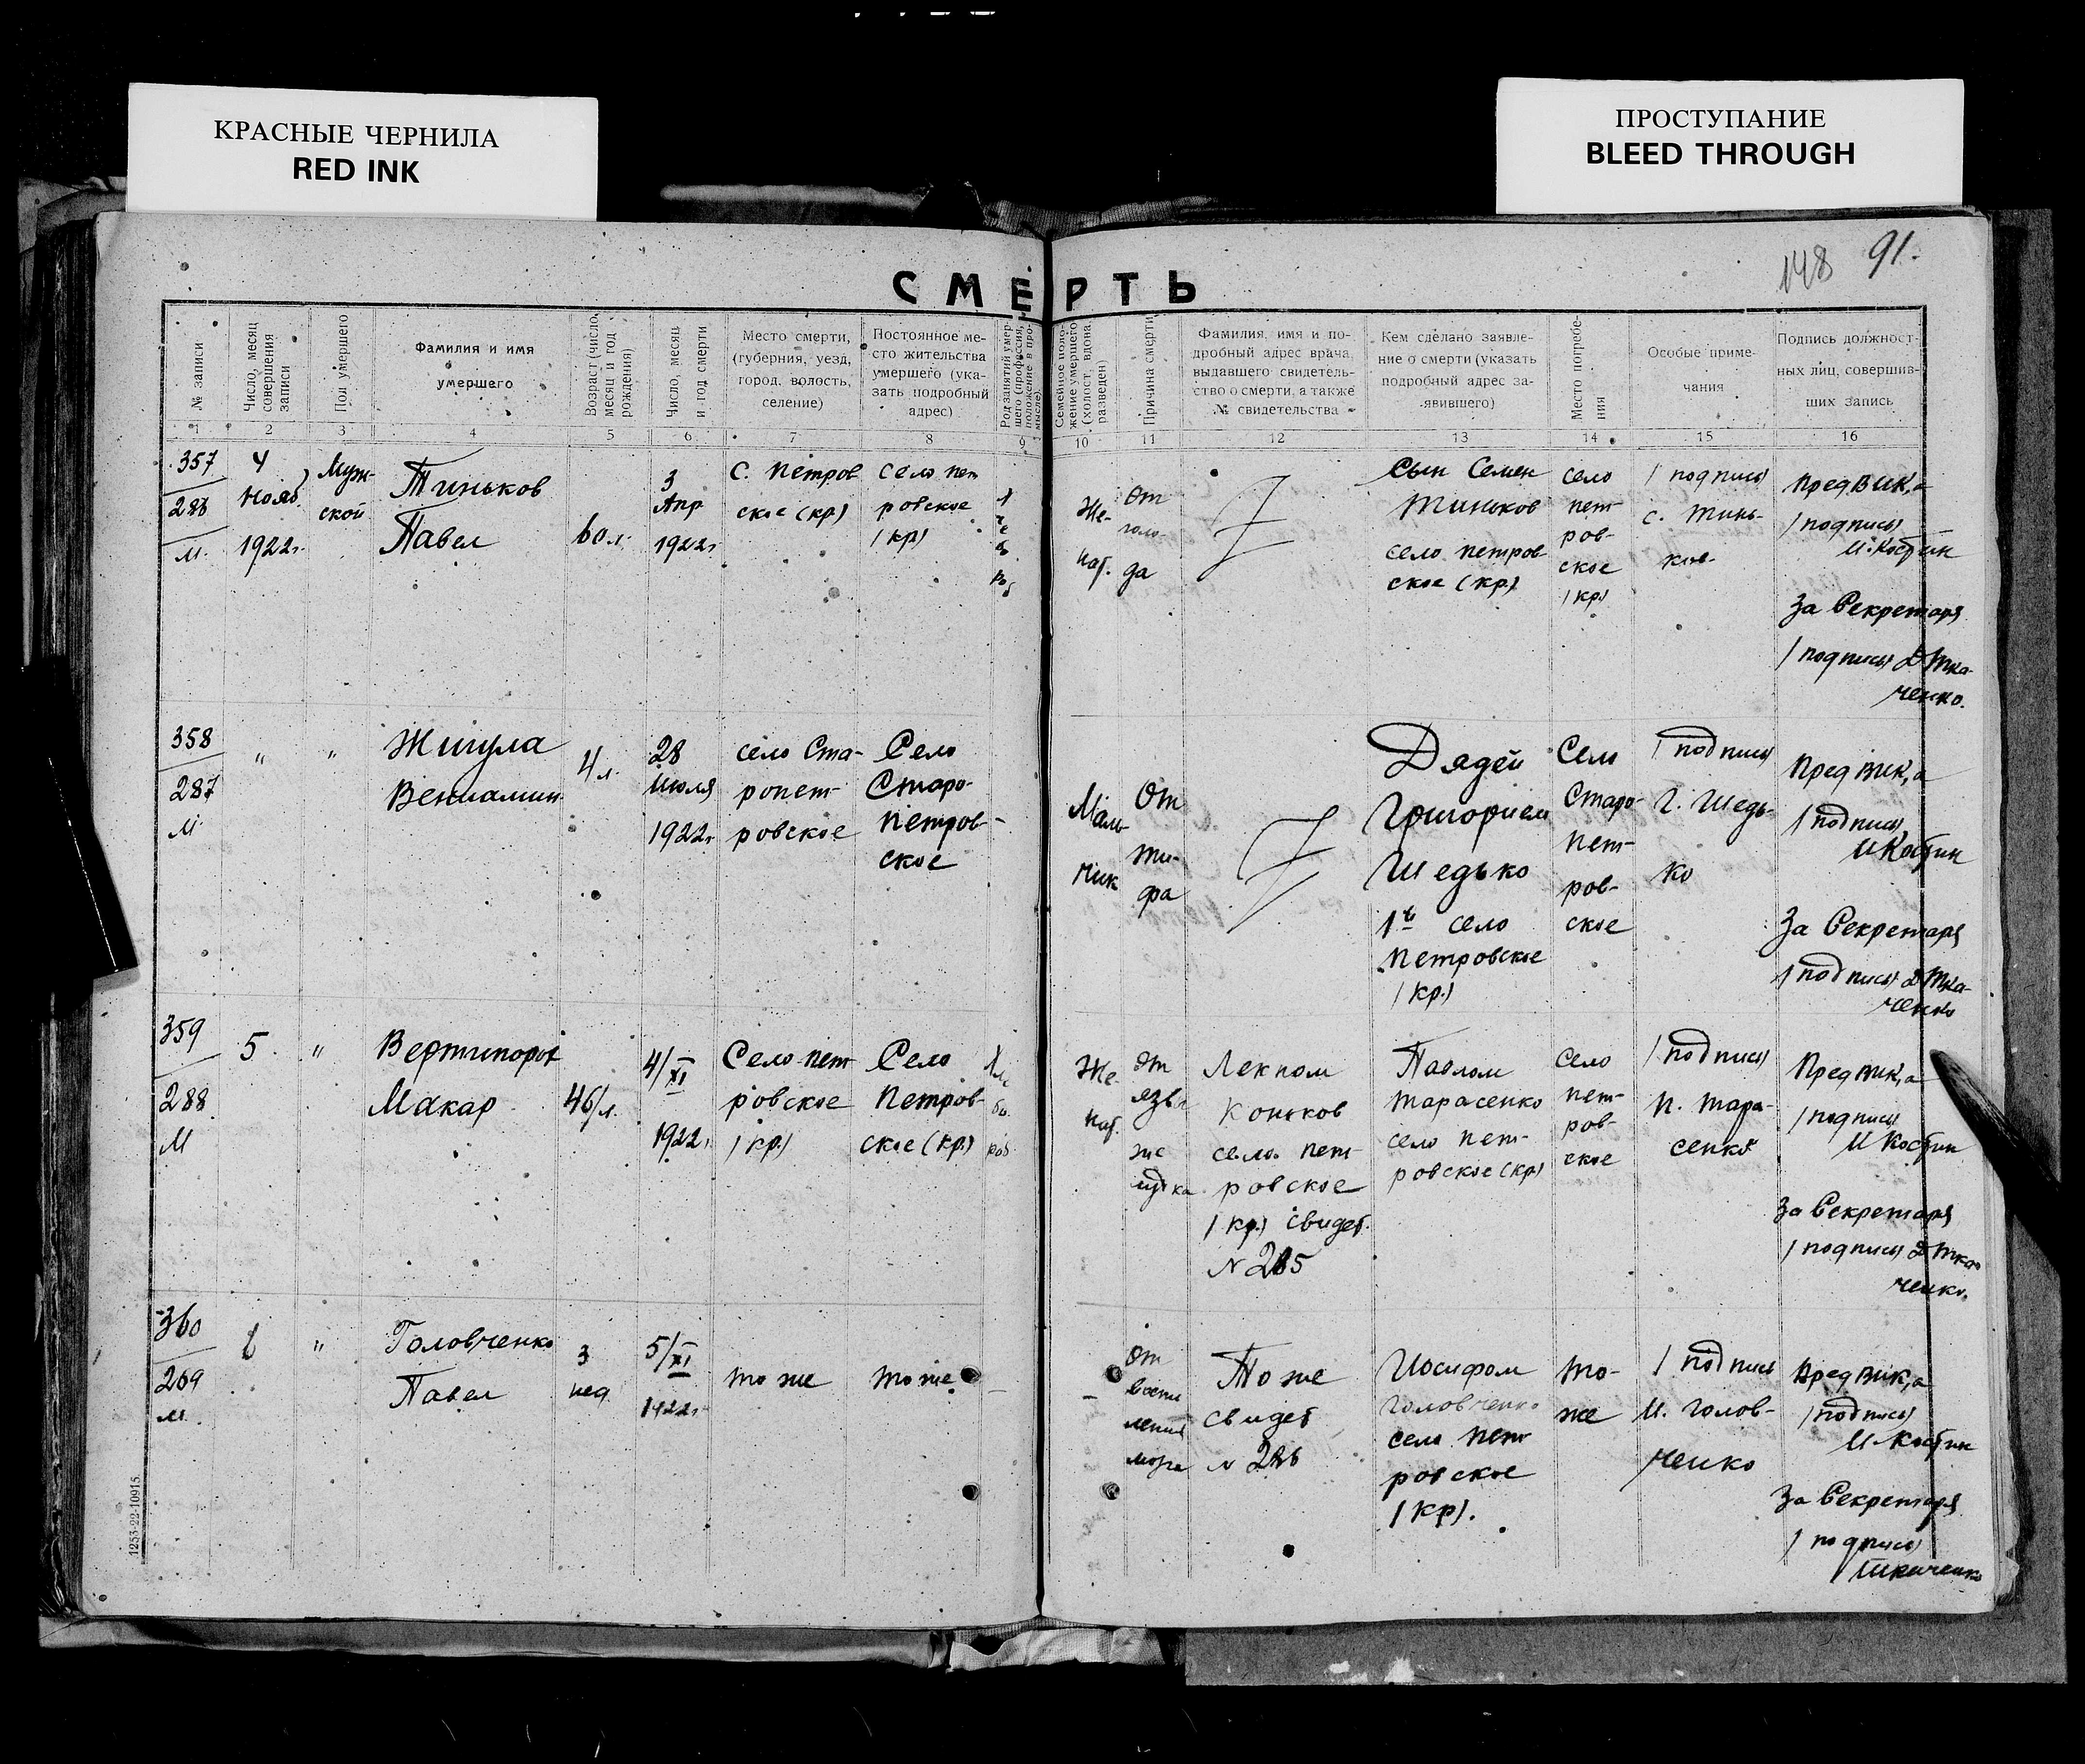 КРАСНЫЕ ЧЕРНИЛА
RED INK
ПРОСТУПАНИЕ
BLEED THROUGH
148 91.
СМЕРТЬ
№ записи
Число, месяц
совершения
записи
Пол умершего
Фамилия и имя
умершего
Возраст (число,
месяц и год
рождения)
Число, месяц
и год смерти
Место смерти,
(губерния, уезд,
город, волость,
селение)
Постоянное ме-
сто жительства
умершего (ука-
зать подробный
адрес)
Род занятий умер-
шего (профессия,
положение в про-
мысле).
Семейное поло-
жение умершего
(холост, вдова,
разведен)
Причина смерти
Фамилия, имя и по-
дробный адрес врача,
выдавшего свидетель-
ство о смерти, а также
№ свидетельства
Кем сделано заявле-
ние о смерти (указать
подробный адрес за-
явившего)
Место погребе-
ния
Особые приме-
чания
Подпись должност-
ных лиц, совершив-
ших запись
1 2 3 4 5 6 7 8 9 10 11 12 13 14 15 16
357
286
м.
4
Нояб
1922г.
Муж-
ской
Тиньков
Павел
60 л.
3
Апр
1922г
с. Петров
ское (кр)
село Пет
ровское
(кр)
Же-
нат.
От
голо-
да
Сын Семен
Тиньков
село Петров
ское (кр)
село
Пет-
ров-
ское
(кр)
(подпись)
с. Тинь-
ков
Пред ВИК,а
(подпись)
И. Костин
За Секретаря
(подпись) Д Тка-
ченко.
358
287
м.
"
"
Жигула
Вениамин
4 л.
28
Июля
1922г
село Ста-
ропет-
ровское
Село
Старо-
Петров-
ское
Маль-
чик
От
ти-
фа
Дядей
Григорием
Шедько
село
Петровское
(кр.)
Село
Старо-
Пет-
ров-
ское
(подпись)
Г. Шедь-
ко
Пред ВИК,а
(подпись)
И Костин
За Секретаря
(подпись) Д Тка-
ченко
359
288
М
5
"
Вертипорох
Макар
46 л.
4/XI
1922г
Село Пет
ровское
(кр.)
Село
Петров-
ское (кр.)
Же-
нат.
От
язвы
же
лудка
Лекпом
Коньков
село Пет-
ровское
(кр.) Свидет.
N 285
Павлом
Тарасенко
село Пет-
ровское (кр)
село
Пет-
ров-
ское
(подпись)
П. Тара-
сенко
Пред ВИК,а
(подпись)
И Костин
За Секретаря
(подпись) Д Тка-
ченко.
360
269
м.
6
"
Головченко
Павел
3
нед.
5/XI
1922г
то же
то же
От
То же
Свидет
N 286
Иосифом
Головченко
село Пет
ровское
(кр).
То-
же
(подпись
И. Голов-
ченко
Пред ВИК,а
(подпись)
И. Костин
За Секретаря
(подпись)
1253-22-10915.